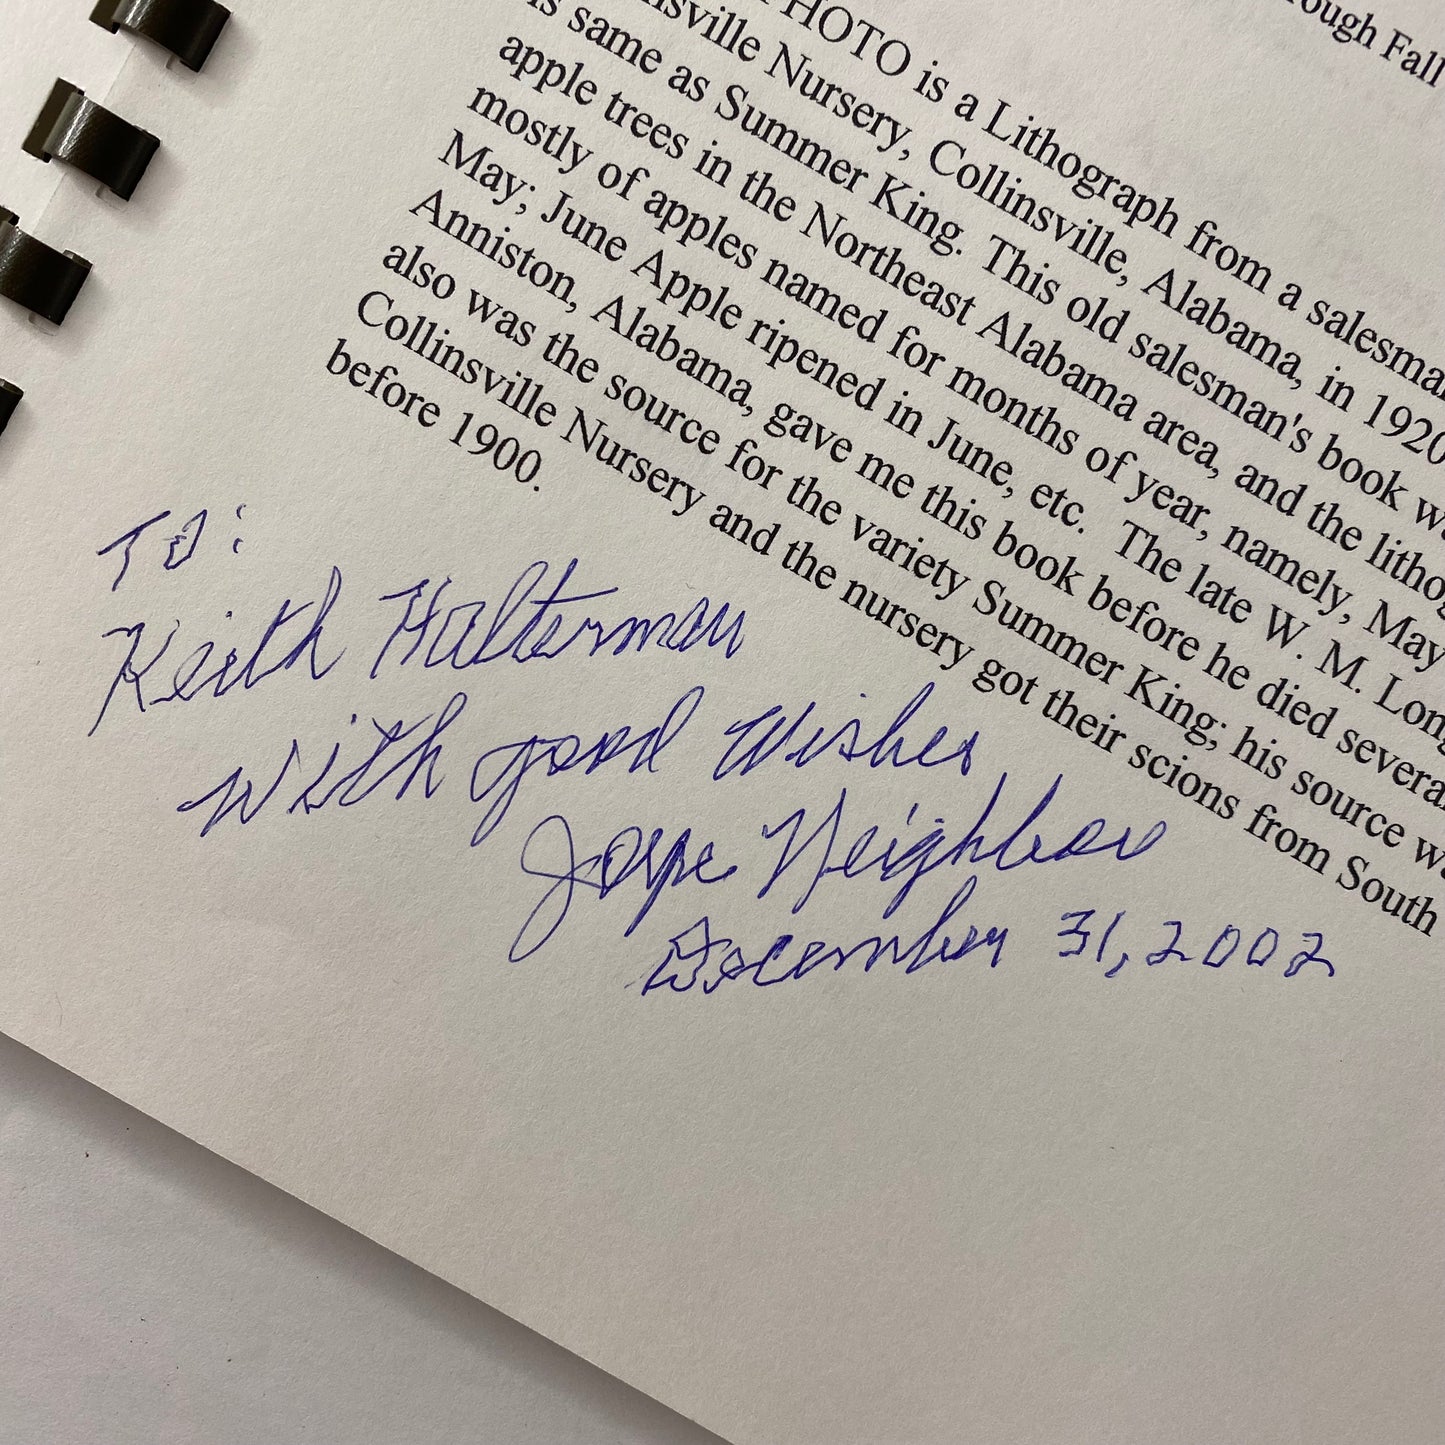 rough Fall
HOTO is a Lithograph from a salesma
nsville Nursery, Collinsville, Alabama, in 1920
is same as Summer King. This old salesman's book w
apple trees in the Northeast Alabama area, and the lithog
mostly of apples named for months of year, namely, May
May; June Apple ripened in June, etc. The late W. M. Long
Anniston, Alabama, gave me this book before he died severa
also was the source for the variety Summer King; his source w
Collinsville Nursery and the nursery got their scions from South
before 1900.
To:
Keith Halterman
with good Wishes
Joyce Neighbors
December 31, 2002